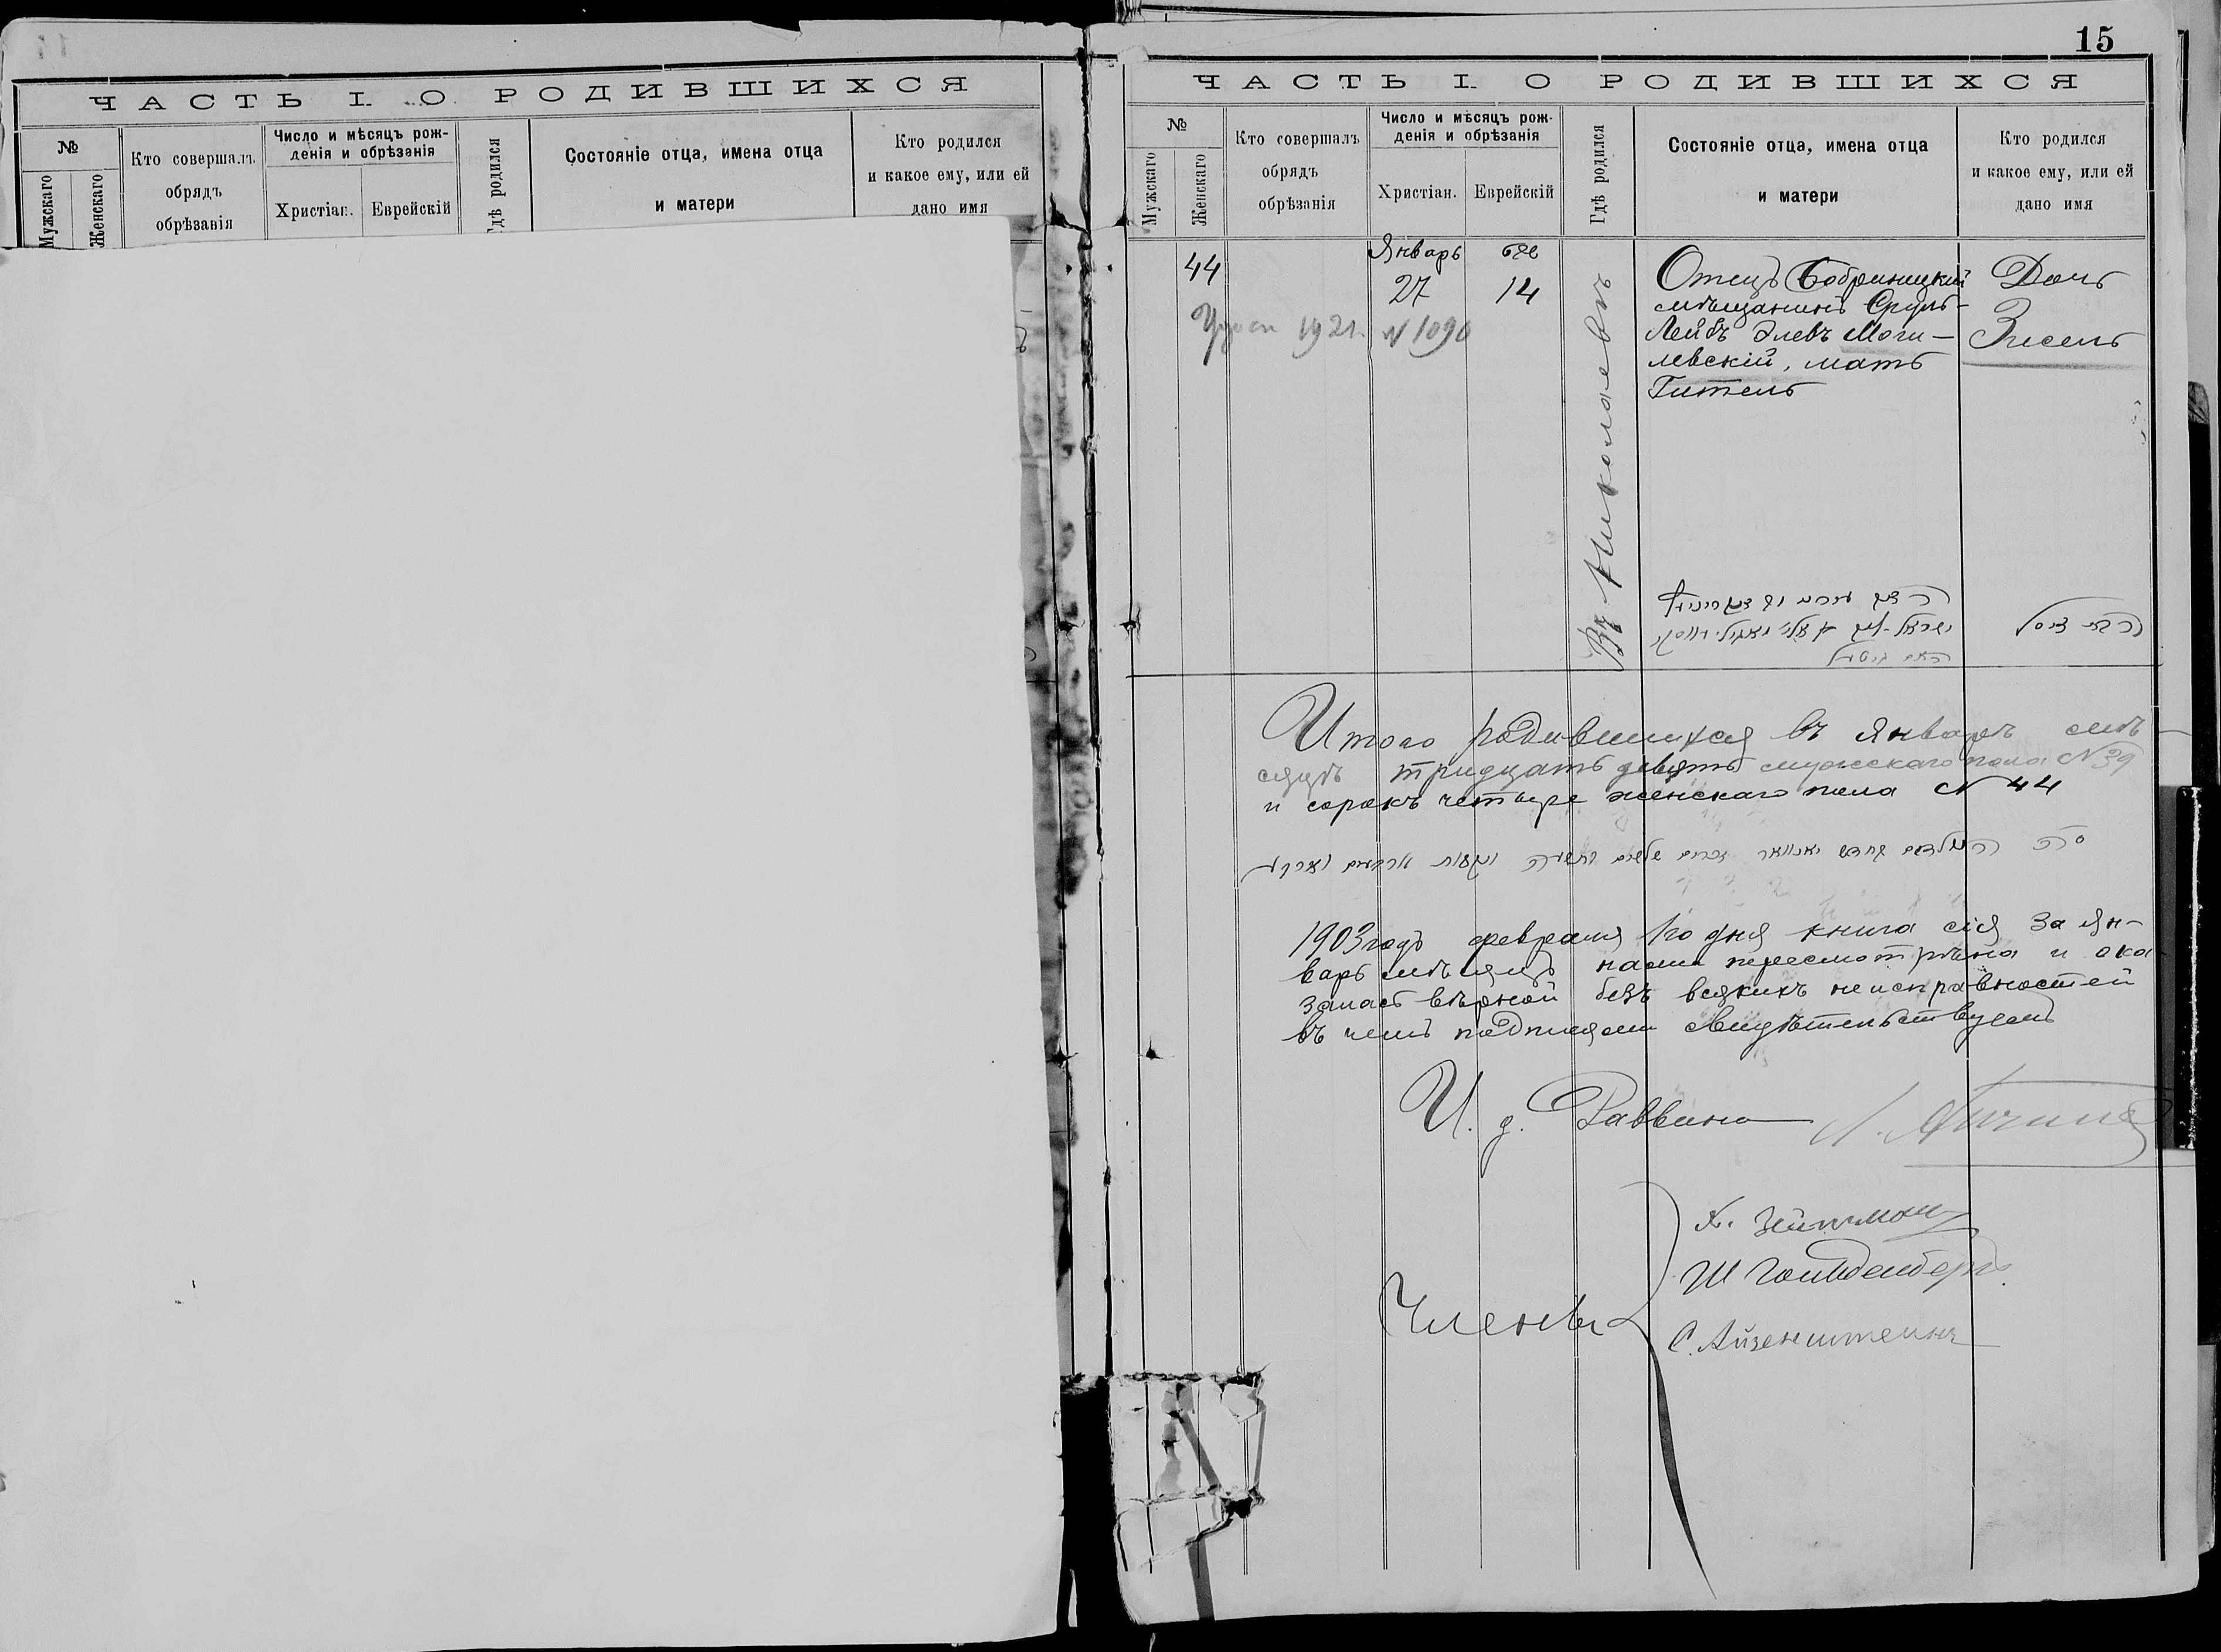 ЧАСТЬ I. О РОДИВШИХСЯ
№
Мужскаго
Женскаго
Кто совершалъ
обрядъ
обрѣзанія
Число и мѣсяцъ рож-
денія и обрѣзанія
Христіан.
Еврейскій
Гдѣ родился
Состояніе отца, имена отца
и матери
Кто родился
и какое ему, или ей
дано имя
15
ЧАСТЬ I. О РОДИВШИХСЯ
№
Мужскаго
Женскаго
Кто совершалъ
обрядъ
обрѣзанія
Число и мѣсяцъ рож-
денія и обрѣзанія
Христіан.
Еврейскій
Гдѣ родился
Состояніе отца, имена отца
и матери
Кто родился
и какое ему, или ей
дано имя
44
Январь
27
14
1921. N 1090
Въ Николаевѣ
Отецъ Бобринецкій
мѣщанинъ Сруль-
Лейбъ Элевъ Моги-
левскій, мать
Гитель
Дочь
Зисель
Итого родившихся въ Январѣ мѣ
сяцѣ тридцать девять мужскаго пола N 39
и сорокъ четыре женскаго пола N 44
1903 годъ февраля 1го дня книга сія за ян-
варь мѣсяцъ нами пересмотрѣна и ока
залась вѣрной безъ всякихъ неисправностей
въ чемъ подписями свидѣтельствуемъ
И. д. Раввина
Члены
Ш Гольденбергъ
С. Айзенштейнъ